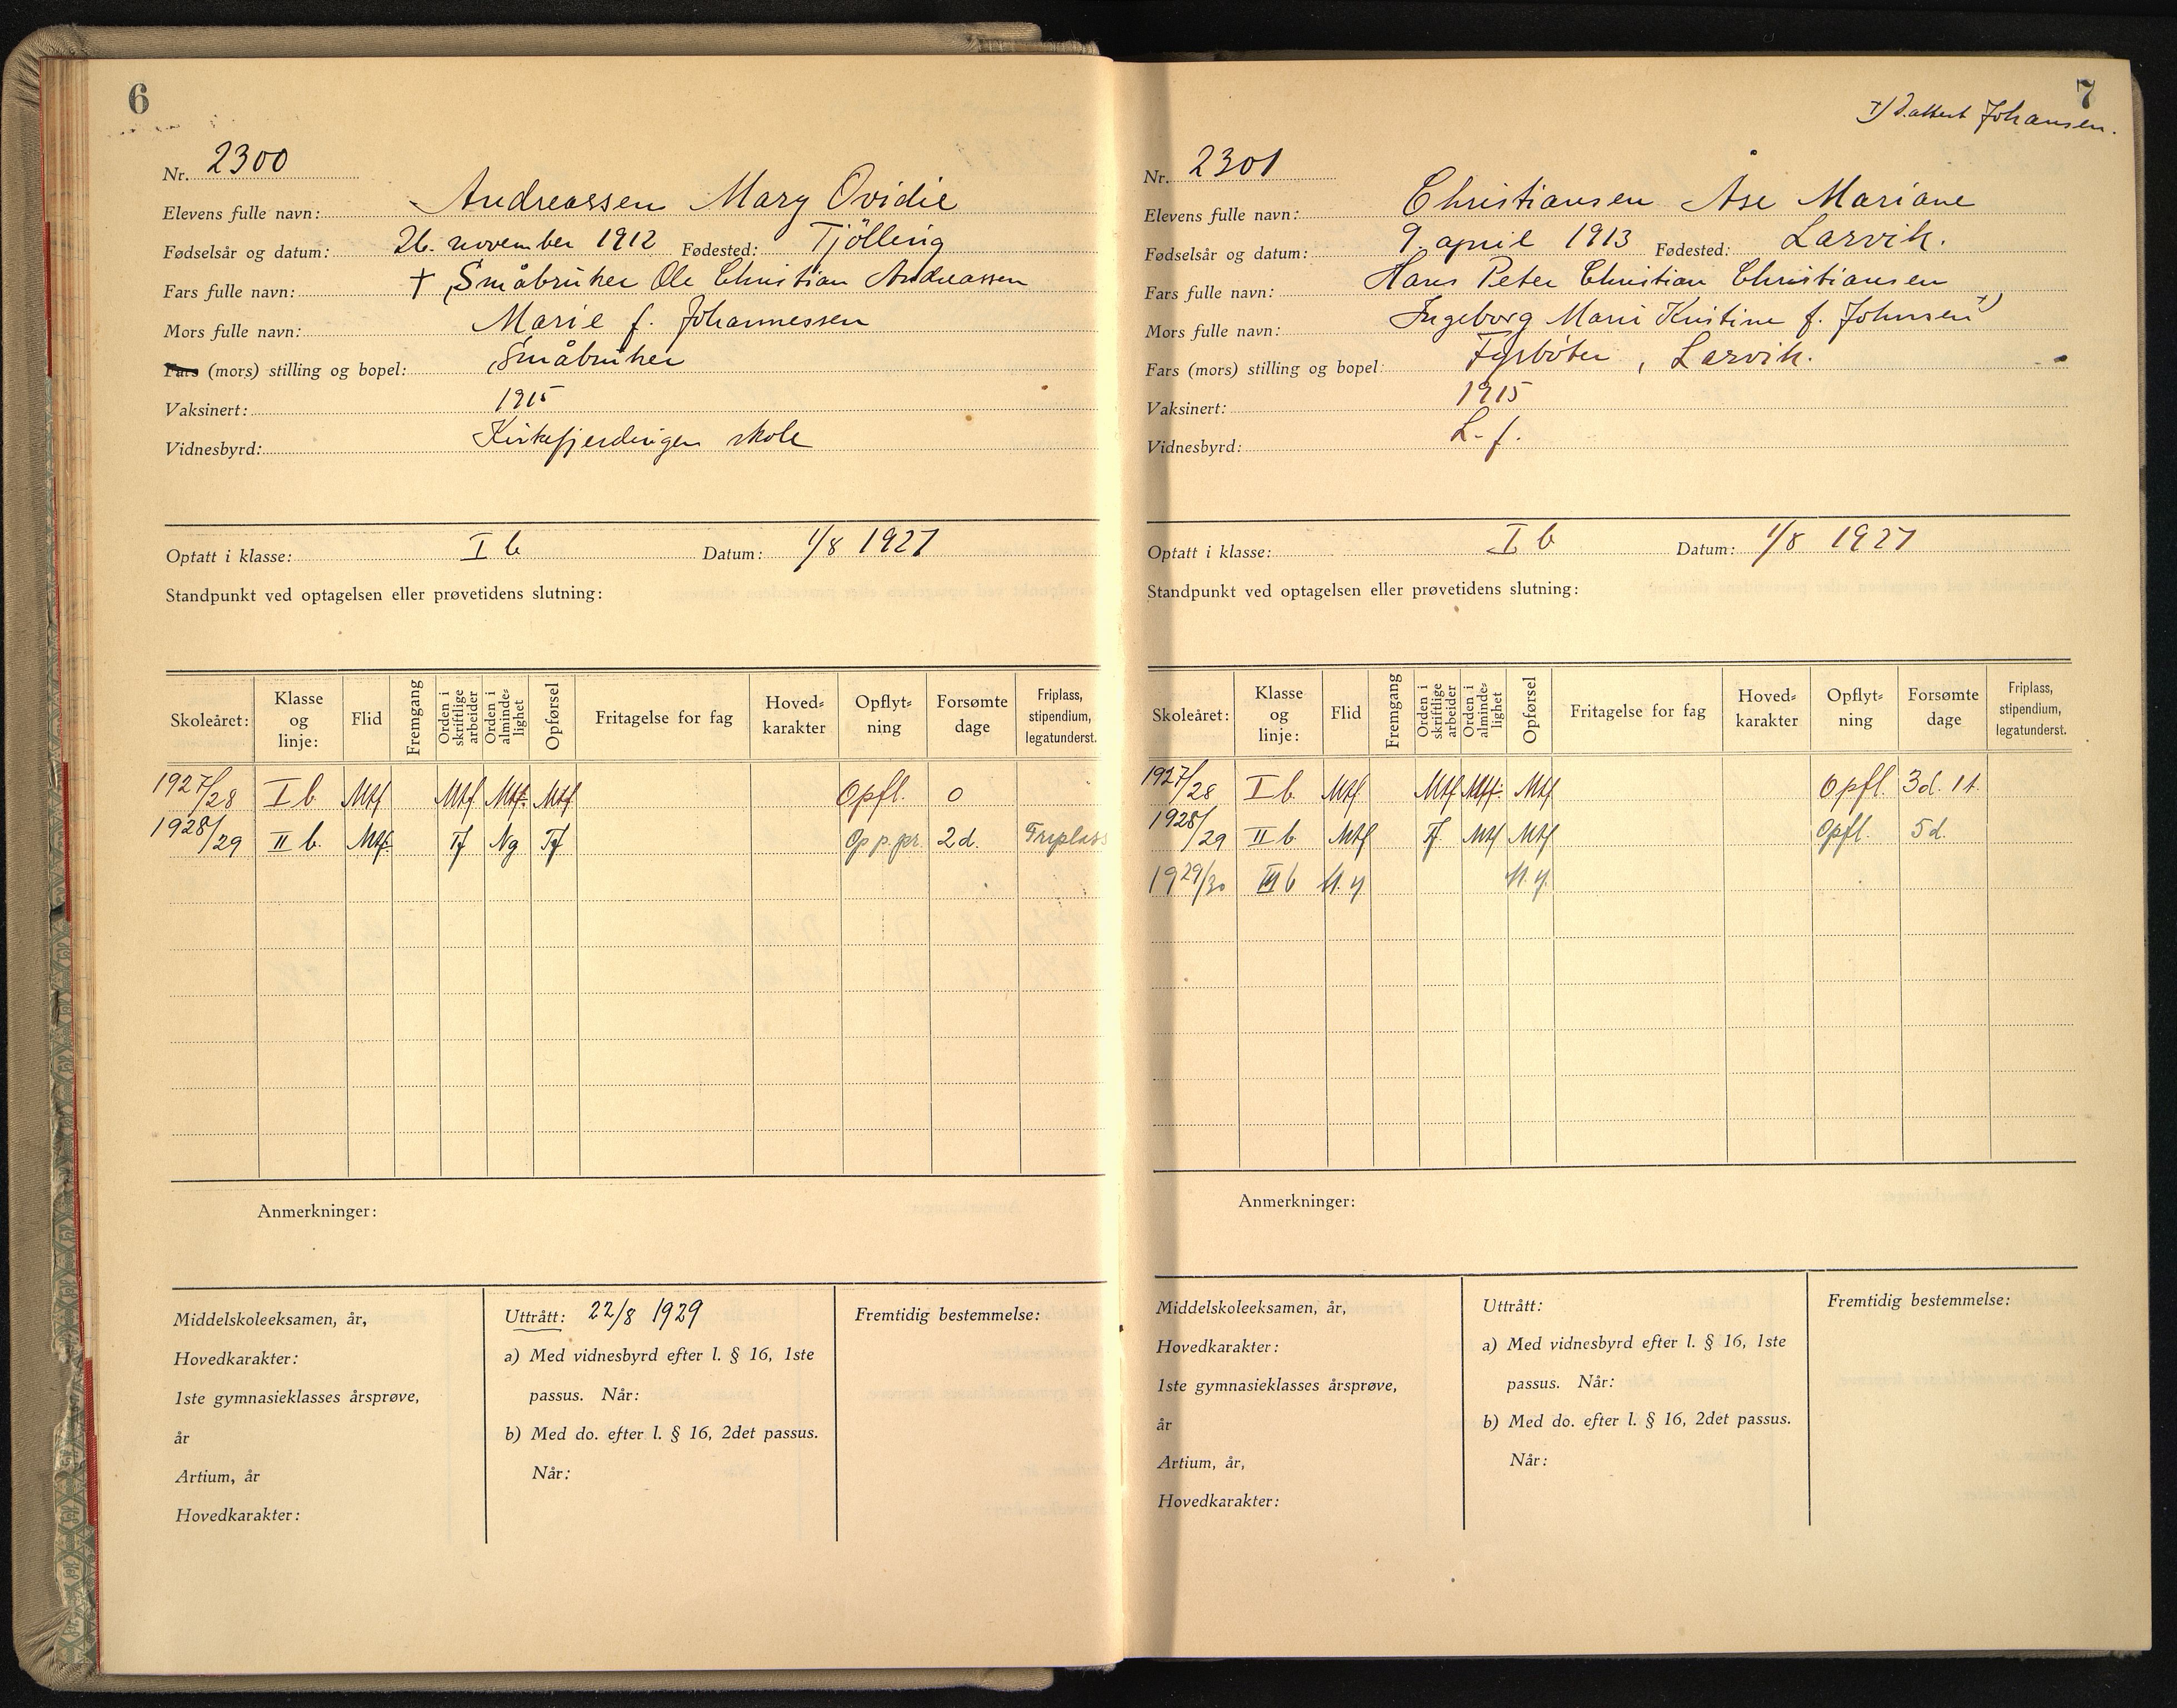 6
Nr. 2300
Elevens fulle navn: Andreassen Mary Ovidie
Fødselsår og datum: 26. november 1912 Fødested: Tjölling
Fars fulle navn: † Småbruker Ole Christian Andreassen
Mors fulle navn: Marie f. Johannessen
Fars (mors) stilling og bopel: Småbruker
Vaksinert: 1915
Vidnesbyrd: Kirkefjerdingen skole
Optatt i klasse: I b Datum: 1/8 1927
Standpunkt ved optagelsen eller prøvetidens slutning:
Skoleåret: Klasse og linje: Flid Fremgang Orden i skriftlige arbeider Orden i alminde=lighet Opførsel Fritagelse for fag Hoved=karakter Opflyt=ning Forsømte dage Friplass, stipendium, legatunderst.
1927/28 I b Mtf Mtf Mtf. Mtf Opfl. 0
1928/29 II b. Mtf. Tf Ng Tf Op p. pr. 2 d. Friplass
Anmerkninger:
Middelskoleeksamen, år,
Hovedkarakter:
1ste gymnasieklasses årsprøve,
år
Artium, år
Hovedkarakter:
Uttrått: 22/8 1929
a) Med vidnesbyrd efter l. § 16, 1ste
passus. Når:
b) Med do. efter l. § 16, 2det passus.
Når:
Fremtidig bestemmelse:
7
Johansen.
Nr. 2301
Elevens fulle navn: Christiansen Åse Mariane
Fødselsår og datum: 9. april 1913 Fødested: Larvik.
Fars fulle navn: Hans Peter Christian Christiansen
Mors fulle navn: Ingeborg Marie Kristine f. Johnsen x)
Fars (mors) stilling og bopel: Fyrbøter, Larvik.
Vaksinert: 1915
Vidnesbyrd: L. f.
Optatt i klasse: I b Datum: 1/8 1927
Standpunkt ved optagelsen eller prøvetidens slutning:
Skoleåret: Klasse og linje: Flid Fremgang Orden i skriftlige arbeider Orden i alminde=lighet Opførsel Fritagelse for fag Hoved=karakter Opflyt=ning Forsømte dage Friplass, stipendium, legatunderst.
1927/28 I b. Mtf. Mtf Mtf. Mtf Opfl. 3 d. 1 t.
1928/29 II b Mtf Tf Mtf Mtf Opfl. 5 d.
1929/30 III b M. y M. y.
Anmerkninger:
Middelskoleeksamen, år,
Hovedkarakter:
1ste gymnasieklasses årsprøve,
år
Artium, år,
Hovedkarakter:
Uttrått:
a) Med vidnesbyrd efter l. § 16, 1ste
passus. Når:
b) Med do. efter l. § 16, 2det passus.
Når:
Fremtidig bestemmelse: